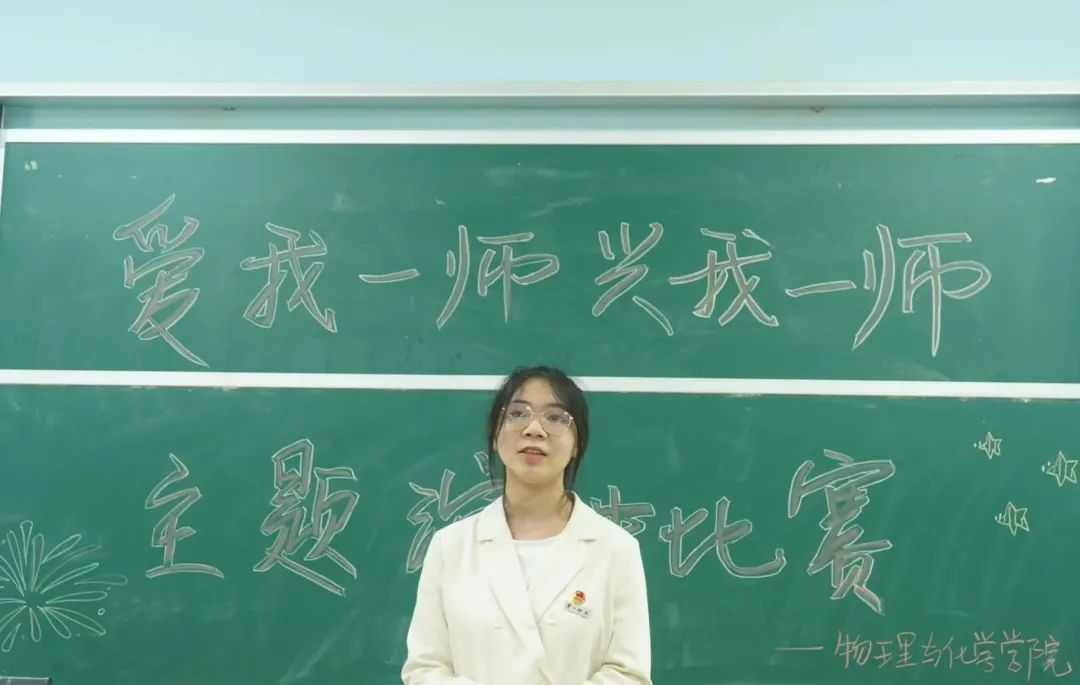 爱我一师 兴我一师
主题演讲比赛
——物理与化学学院